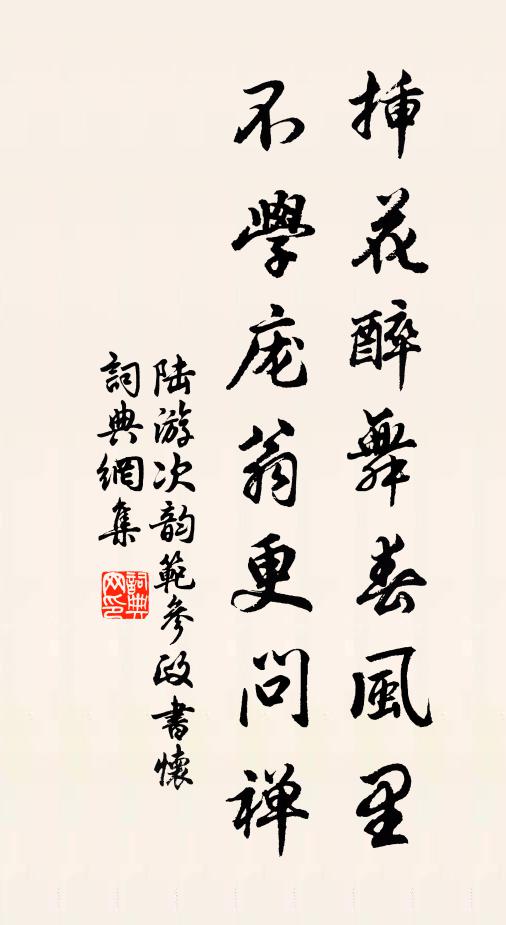 挿花醉舞春風里
不學庞翁更問禅
陆游次韵範參政書懷
詞典網集
詞典網印